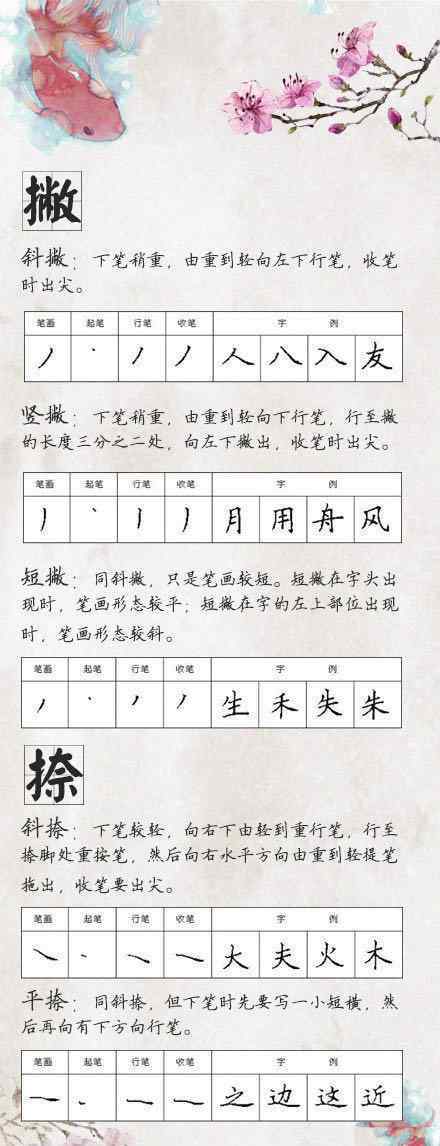 撇
斜撇：下笔稍重，由重到轻向左下行笔，收笔
时出尖。
笔画 起笔 行笔 收笔 字 例
丿 丶 丿 丿 人 八 入 友
竖撇：下笔稍重，由重到轻向下行笔，行至撇
的长度三分之二处，向左下撇出，收笔时出尖。
笔画 起笔 行笔 收笔 字 例
丿 丶 丨 丿 月 用 舟 风
短撇：同斜撇，只是笔画较短。短撇在字头出
现时，笔画形态较平；短撇在字的左上部位出现
时，笔画形态较斜。
笔画 起笔 行笔 收笔 字 例
丿 丶 丿 丿 生 禾 失 朱
捺
斜捺：下笔较轻，向右下由轻到重行笔，行至
捺脚处重按笔，然后向右水平方向由重到轻提笔
拖出，收笔要出尖。
笔画 起笔 行笔 收笔 字 例
㇏ 丶 ㇏ ㇏ 大 夫 火 木
平捺：同斜捺，但下笔时先要写一小短横，然
后再向有下方向行笔。
笔画 起笔 行笔 收笔 字 例
㇏ 丶 ㇏ ㇏ 之 边 这 近